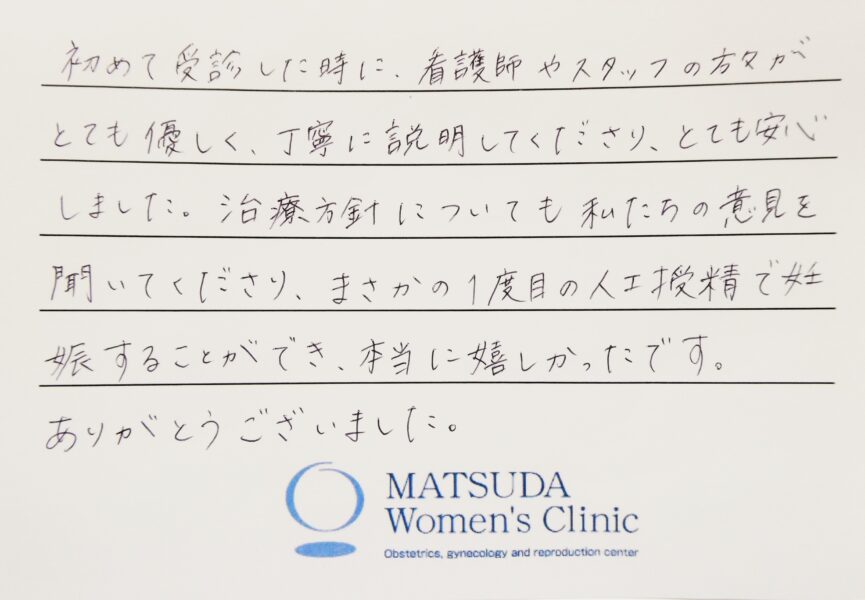 初めて受診した時に、看護師やスタッフの方々が
とても優しく、丁寧に説明してくださり、とても安心
しました。治療方針についても私たちの意見を
聞いてくださり、まさかの1度目の人工授精で妊
娠することができ、本当に嬉しかったです。
ありがとうございました。
MATSUDA
Women's Clinic
Obstetrics, gynecology and reproduction center